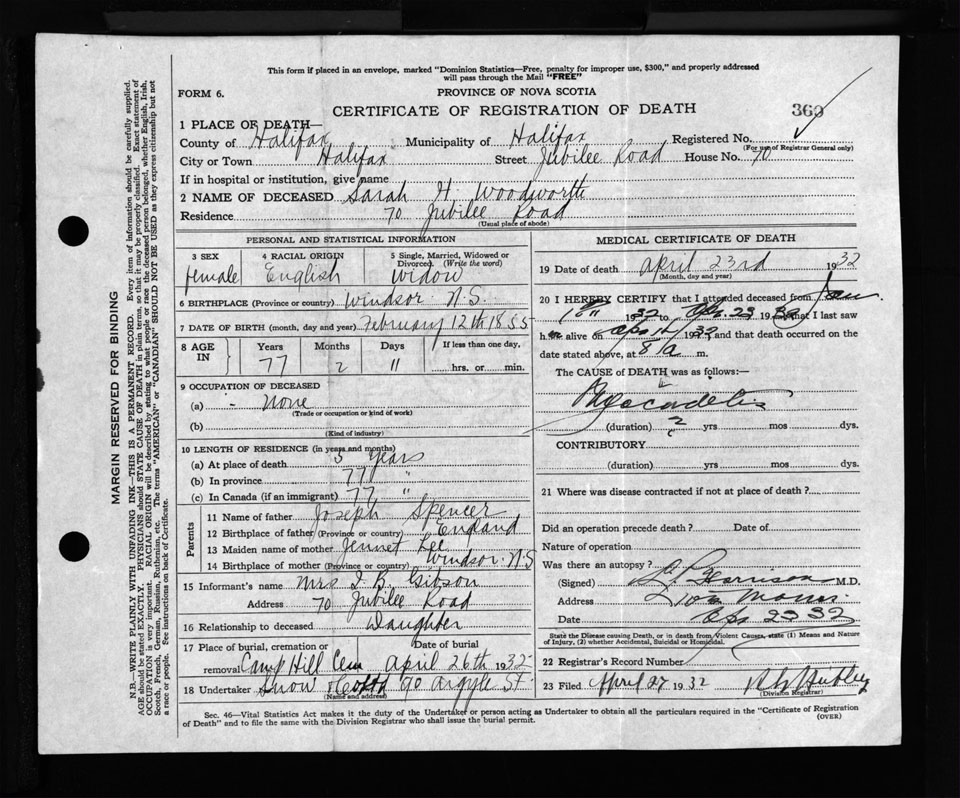 This form if placed in an envelope, marked "Dominion Statistics—Free, penalty for improper use, $300," and properly addressed
will pass through the Mail "FREE"
FORM 6.
PROVINCE OF NOVA SCOTIA
CERTIFICATE OF REGISTRATION OF DEATH
369
1 PLACE OF DEATH—
County of Halifax Municipality of Halifax Registered No.
(For use of Registrar General only)
City or Town Halifax Street Jubilee Road House No. 70
If in hospital or institution, give name
2 NAME OF DECEASED Sarah H. Woodworth
Residence 70 Jubilee Road
(Usual place of abode)
PERSONAL AND STATISTICAL INFORMATION
3 SEX 4 RACIAL ORIGIN 5 Single, Married, Widowed or Divorced. (Write the word)
female English Widow
6 BIRTHPLACE (Province or country) Windsor N.S.
7 DATE OF BIRTH (month, day and year) February 12th 1855
8 AGE IN Years Months Days If less than one day,
77 2 11 hrs. or min.
9 OCCUPATION OF DECEASED
(a) - None
(Trade or occupation or kind of work)
(b)
(Kind of industry)
10 LENGTH OF RESIDENCE (in years and months)
(a) At place of death 3 Years
(b) In province 77 "
(c) In Canada (if an immigrant) 77 "
Parents
11 Name of father Joseph Spencer
12 Birthplace of father (Province or country) England
13 Maiden name of mother Jennet Lee
14 Birthplace of mother (Province or country) Windsor N.S
15 Informant's name Mrs I. B. Gibson
Address 70 Jubilee Road
16 Relationship to deceased Daughter
17 Place of burial, cremation or removal Camp Hill Cem Date of burial April 26th 1932
18 Undertaker Snow & Co 90 Argyle St.
(Name and address)
MEDICAL CERTIFICATE OF DEATH
19 Date of death April 23rd 1932
(Month, day and year)
20 I HEREBY CERTIFY that I attended deceased from Jan
1st 1932 to Apr. 23 1932 that I last saw
h er alive on Apr 12 1932 and that death occurred on the
date stated above, at 8 a m.
The CAUSE of DEATH was as follows:—
(duration) 2 yrs mos dys.
CONTRIBUTORY
(duration) yrs mos dys.
21 Where was disease contracted if not at place of death?
Did an operation precede death? Date of
Nature of operation
Was there an autopsy?
(Signed) Garrison M.D.
Address
Date Apr 23 32
State the Disease causing Death, or in death from Violent Causes, state (1) Means and Nature
of Injury, (2) whether Accidental, Suicidal or Homicidal.
22 Registrar's Record Number
23 Filed April 27 1932
Division Registrar
Sec. 46—Vital Statistics Act makes it the duty of the Undertaker or person acting as Undertaker to obtain all the particulars required in the "Certificate of Registration
of Death" and to file the same with the Division Registrar who shall issue the burial permit.
(OVER)
MARGIN RESERVED FOR BINDING
N.B.—WRITE PLAINLY WITH UNFADING INK—THIS IS A PERMANENT RECORD. Every item of information should be carefully supplied.
AGE should be stated EXACTLY. PHYSICIANS should STATE CAUSE OF DEATH in plain terms, so that it may be properly classified. Exact statement of
OCCUPATION is very important. RACIAL ORIGIN will be described by stating to what people or race the deceased person belonged, whether English, Irish,
Scotch, French, German, Russian, Ruthenian, etc. The terms "AMERICAN" or "CANADIAN" SHOULD NOT BE USED as they express citizenship but not
a race or people. See instructions on back of Certificate.